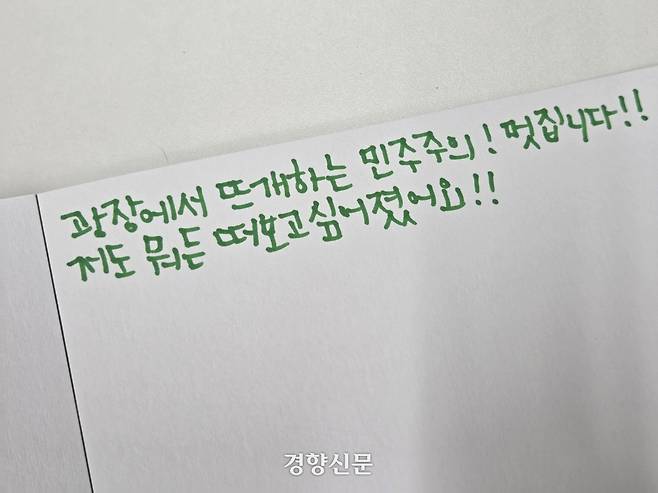 광장에서 뜨개하는 민주주의! 멋집니다!!
저도 뭐든 떠보고싶어졌어요!!
경향신문